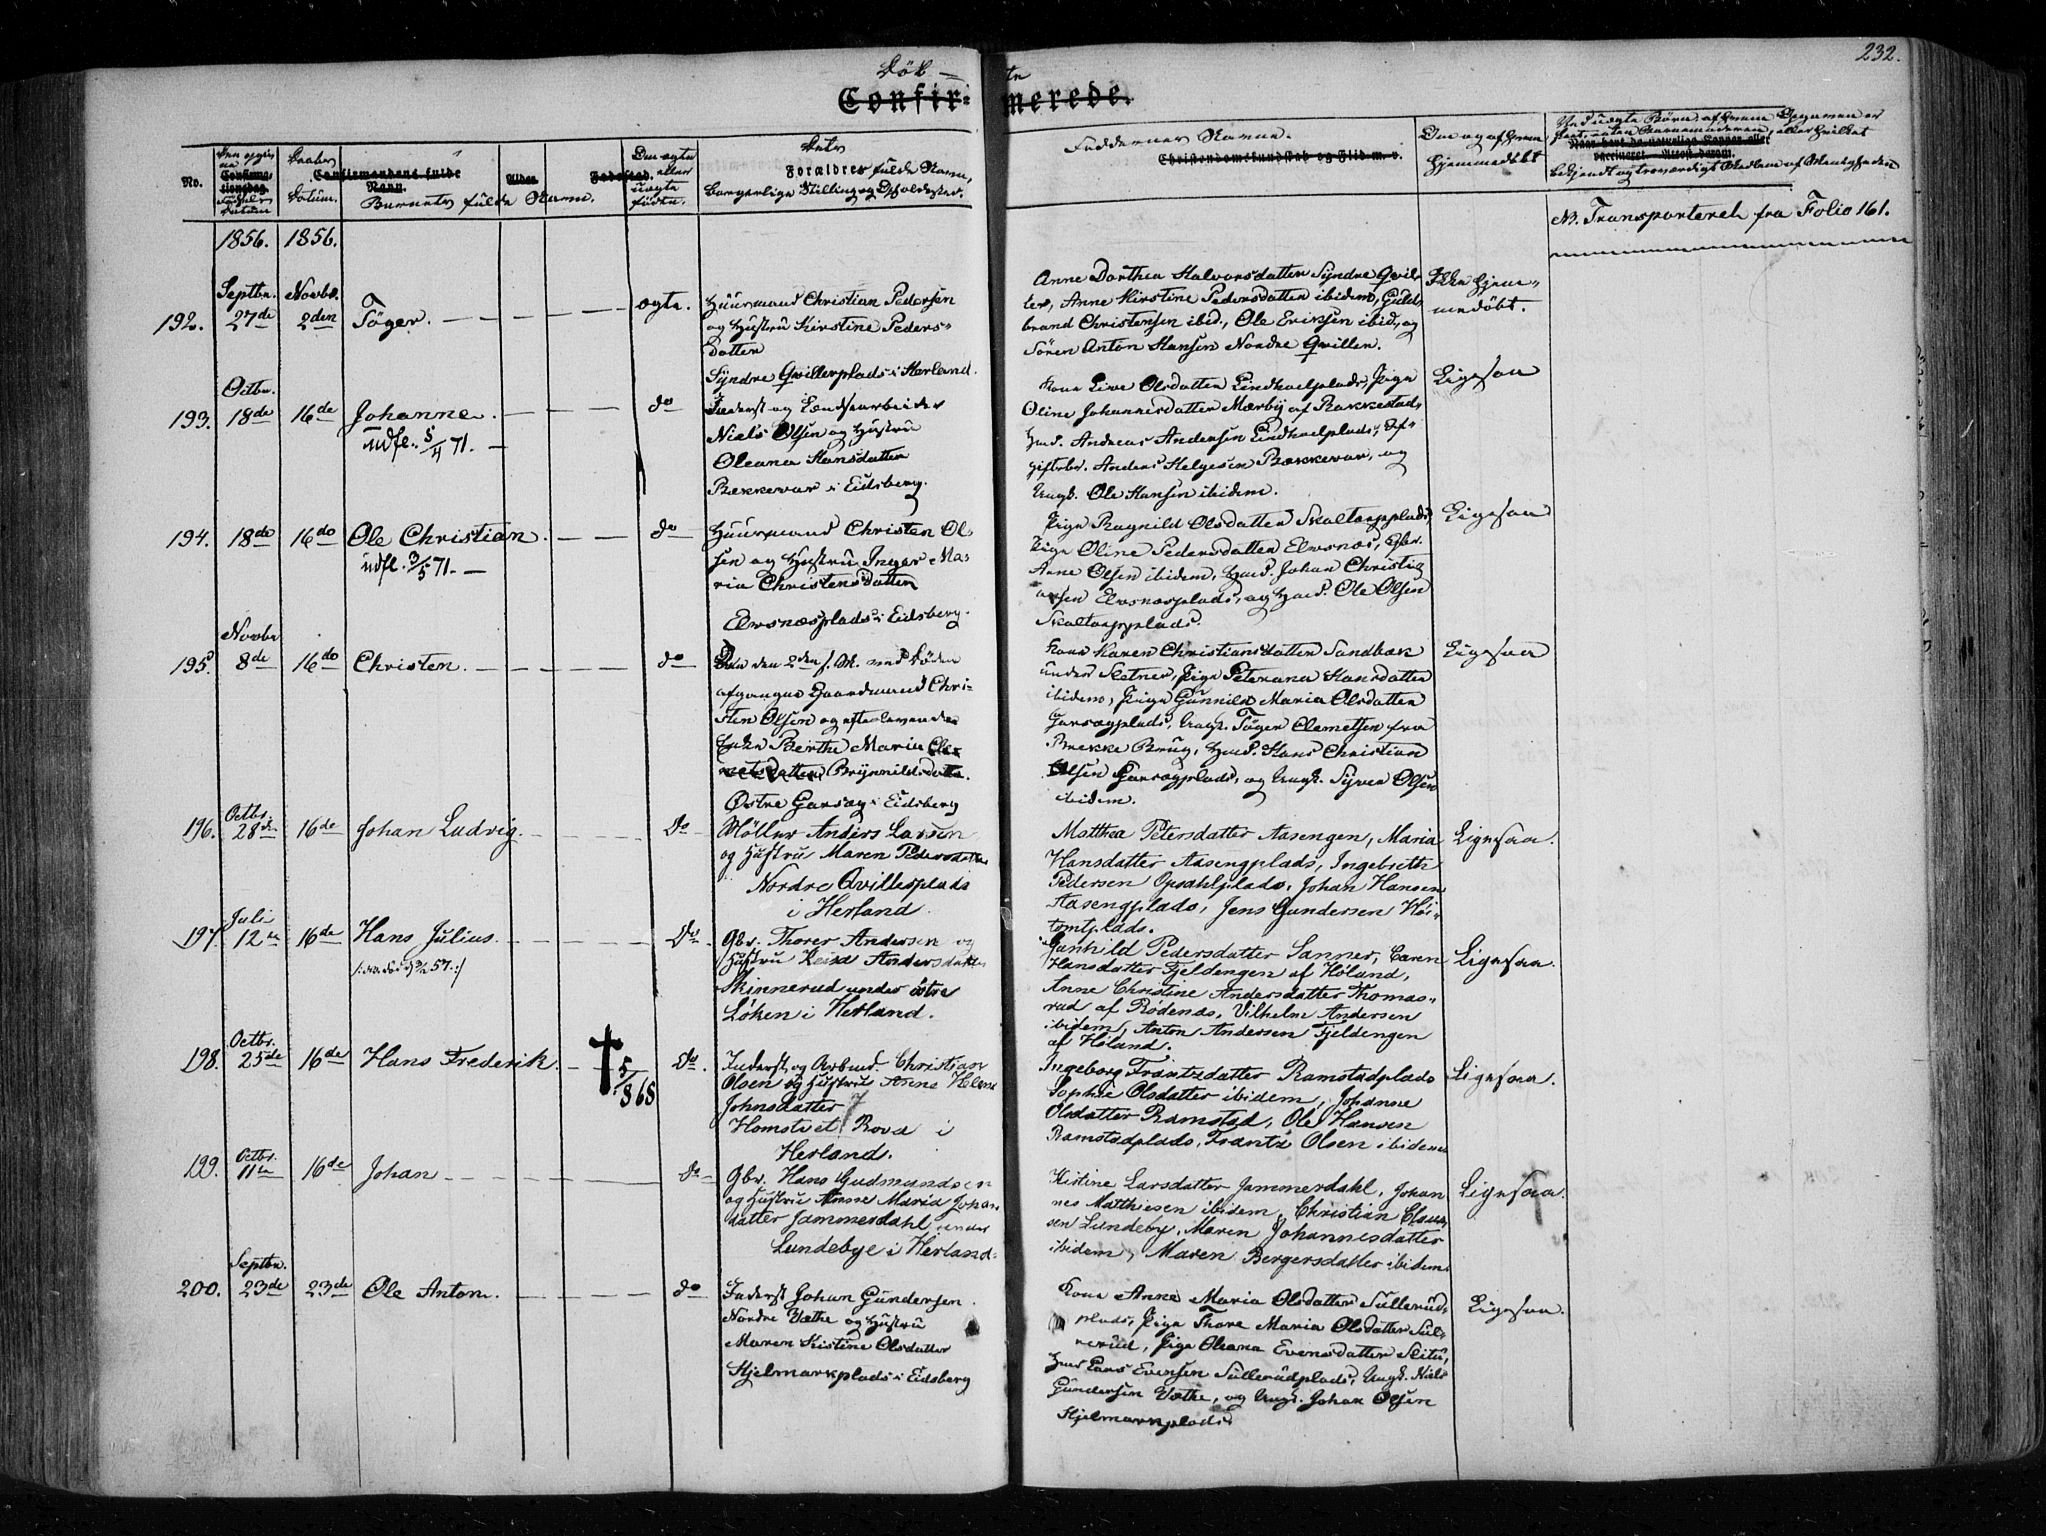 232.
Döbte
Confirmerede.
No.
Confirmationsdag.
Datum
Daabs
Datum.
Confirmandens fulde Navn.
Alder.
Fødested.
Barnets fulde Navn.
Om ægte
eller
uægte
født.
Dets
Forældres fulde Navn,
borgerlige Stilling og Opholdssted.
Faddernes Navne.
Christendomskundskab og Flid m. v.
Om og af hvem
hjemmedöbt
Ved uægte Börn, af hvem
Naar, hvor, af
vaccineret
Nb. Transporteret fra Folio 161.
1856. 1856.
192.
Septbr.
27de
Novbr.
2den
Töger.
ægte.
Huusmand Christian Pedersen
og Hustru Kirstine Peders-
datter
Syndre Qvillerplads i Herland.
Anne Dorthea Halvorsdatter Syndre Qvil-
ler, Anne Kirstine Pedersdatter ibidem, Guld-
brand Christensen ibid., Ole Eriksen ibid, og
Sören Anton Hansen Nordre Qviller.
Ikke hjem-
medöbt.
193.
Octbr.
18de
16de
Johanne.
udfl. 5/4 71.
do
Inderst og Lændsarbeider
Niels Olsen og Hustru
Oleana Hansdatter
Bækkevar i Eidsberg.
Kone Live Olsdatter Lindhoelplads, Pige
Oline Johannesdatter Mærby af Rakkestad,
Hmd. Andreas Andersen Lindhoelplads, Af-
giftsbr. Anders Helgesen Bækkevar, og
Ungk. Ole Hansen ibidem.
Ligesaa
194.
18de
16de
Ole Christian.
udfl. 3/5 71.
do
Huusmand Christen Ol-
sen og Hustru Inger Ma-
ria Christensdatter
Elvsnæsplads i Eidsberg.
Pige Ragnild Olsdatter Skaltorpplads,
Pige Oline Pedersdatter Elvsnæs, Gbr.
Arne Olsen ibidem, Hmd. Johan Christi-
ansen Elvsnæsplads, og Hmd. Ole Olsen
Skaltorpplads.
Ligesaa
195.
Novbr
8de
16de
Christen.
do
Den den 2den f. M. ved Döden
afgangne Gaardmand Chri-
sten Olsen og efterlevende
Enke Berthe Maria Cle-
metsdatter Brynnildsdatter.
Østre Garsæg i Eidsberg
Kone Karen Christiansdatter Sandbæk
under Sletner, Pige Peterana Hansdatter
ibidem, Pige Gunnild Maria Olsdatter
Garsægplads, Ungk. Töger Clemetsen fra
Brekke Brug, Hmd. Hans Christian
Olsen Garsægplads, og Ungk. Syver Olsen
ibidem.
Ligesaa
196.
Octbr.
28de
16de
Johan Ludvig.
Do
Møller Anders Larsen
og Hustru Maren Pedersdatter
Nordre Qvillerplads
i Herland.
Matthea Petersdatter Aasengen, Maria
Hansdatter Aasengplads, Ingebreth
Pedersen Opsahlplads, Johan Hansen
Aasengplads, Jens Gundersen Höi-
tomtplads.
Ligesaa.
197.
Juli
12te
16de
Hans Julius.
Do.
Gbr. Thorer Andersen og
Hustru Andersdatter
Skinnerud under östre
Löken i Herland.
Gunhild Pedersdatter Sanner, Caren
Hansdatter Fjeldengen af Höland,
Anne Christine Andersdatter Thomas-
rud af Rödenæs, Vilhelm Andersen
ibidem, Anton Andersen Fjeldengen
af Höland.
Ligesaa.
198.
Octbr.
25de
16de
Hans Frederik.
† 5/8 68
Do.
Inderst og Arbeid. Christian
Olsen og Hustru Anne Helene
Johnsdatter
Homstvet Rova i
Herland.
Ingeborg Frantzdatter Ramstadplads
Sophie Olsdatter ibidem, Johanne
Olsdatter Ramstad, Ole Hansen
Ramstadplads, Frantz Olsen ibidem
Ligesaa.
199.
Octbr.
11te
16de
Johan
do
Gbr. Hans Gudmundsen
og Hustru Anne Maria Johan-
datter Jammerdahl under
Lundebye i Herland.
Kistine Larsdatter Jammerdahl, Johan
nes Matthiesen ibidem, Christian Claus-
sen Lundeby, Maren Johannesdatter
ibidem, Maren Bergersdatter ibidem
Ligesaa.
200.
Septbr.
23de
23de
Ole Anton.
do
Inderst Johan Gundersen
Nordre Væthe og Hustru
Maren Kistine Olsdatter
Hjelmarkplads i Eidsberg
Kone Anne Maria Olsdatter Sullerud-
plads, Pige Thore Maria Olsdatter Sul-
lerud, Pige Oleana Evensdatter Slitu,
Hmd Lars Evensen Sullerudplads, Ungk. Niels
Gundersen Væthe, og Ungk. Johan Olsen
Hjelmarkplads
Ligesaa.